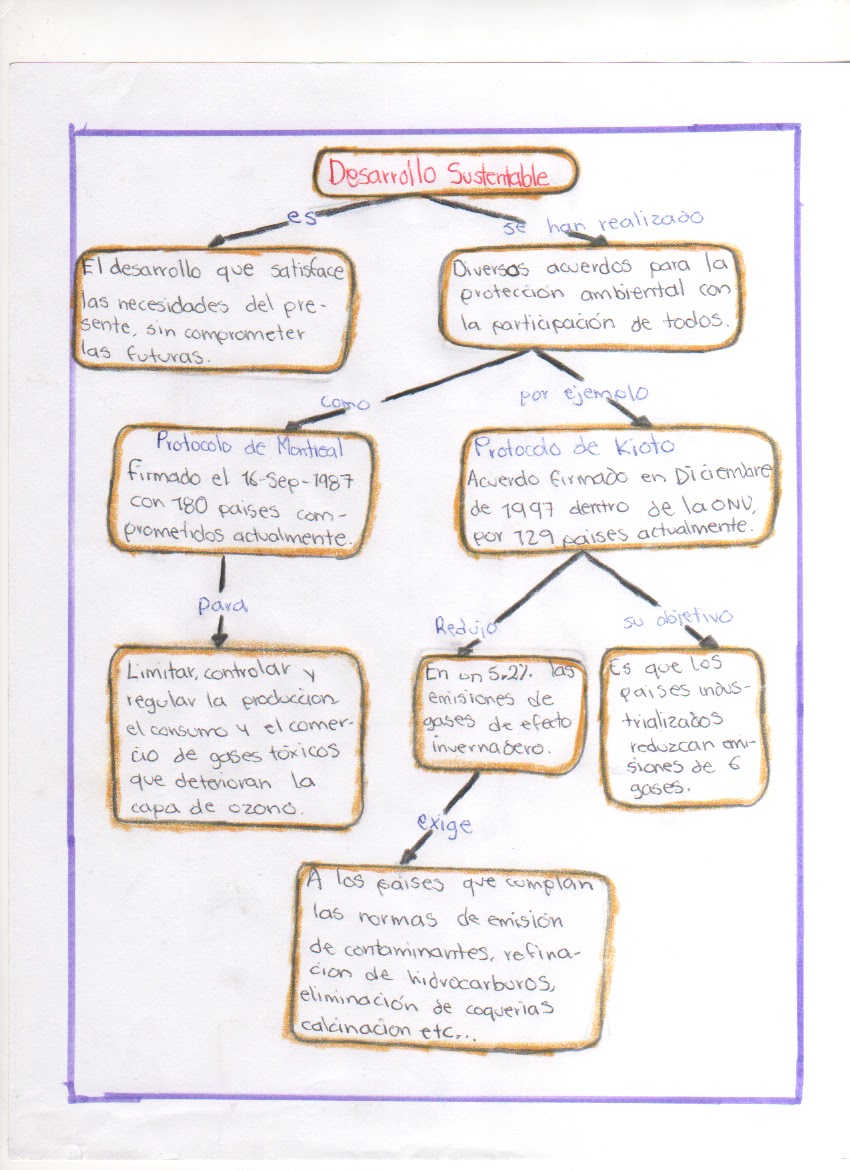 Desarrollo Sustentable
es
se han realizado
El desarrollo que satisface
las necesidades del pre-
sente, sin comprometer
las futuras.
Diversos acuerdos para la
protección ambiental con
la participación de todos.
como
por ejemplo
Protocolo de Montreal
Firmado el 16-Sep-1987
con 180 paises com-
prometidos actualmente.
Protocolo de Kioto
Acuerdo firmado en Diciembre
de 1997 dentro de la ONU,
por 129 paises actualmente.
para
Redujo
su objetivo
Limitar, controlar y
regular la produccion
el consumo y el comer-
cio de gases tóxicos
que deterioran la
capa de ozono.
En un 5.2% las
emisiones de
gases de efecto
invernadero.
Es que los
paises indus-
trializados
reduzcan emi-
siones de 6
gases.
exige
A los paises que cumplan
las normas de emisión
de contaminantes, refina-
cion de hidrocarburos,
eliminación de coquerias
calcinacion etc...